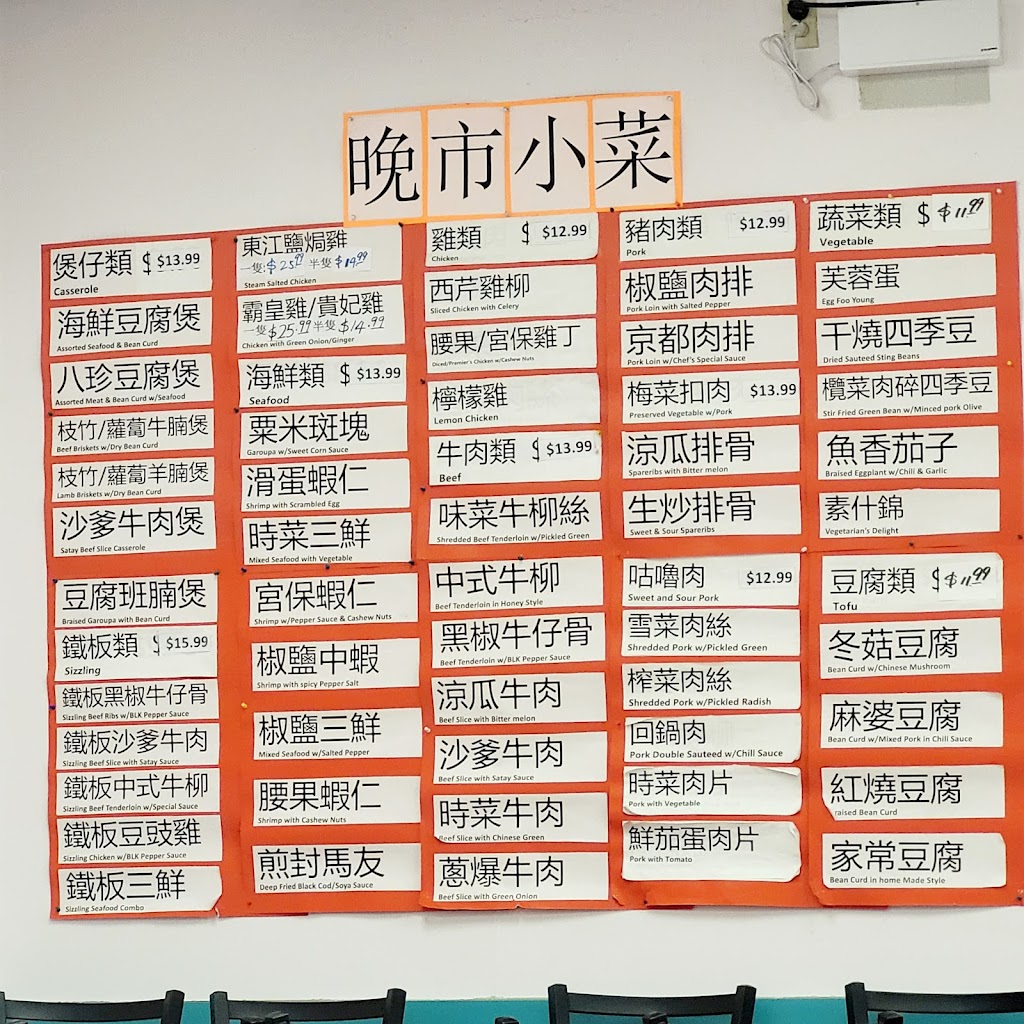 晚市小菜
煲仔類 $ $13.99
Casserole
海鮮豆腐煲
Assorted Seafood & Bean Curd
八珍豆腐煲
Assorted Meat & Bean Curd w/Seafood
枝竹/蘿蔔牛腩煲
Beef Briskets w/Dry Bean Curd
枝竹/蘿蔔羊腩煲
Lamb Briskets w/Dry Bean Curd
沙爹牛肉煲
Satay Beef Slice Casserole
豆腐班腩煲
Braised Garoupa with Bean Curd
鐵板類 $ $15.99
Sizzling
鐵板黑椒牛仔骨
Sizzling Beef Ribs w/BLK Pepper Sauce
鐵板沙爹牛肉
Sizzling Beef Slice with Satay Sauce
鐵板中式牛柳
Sizzling Beef Tenderloin w/Special Sauce
鐵板豆豉雞
Sizzling Chicken w/BLK Pepper Sauce
鐵板三鮮
Sizzling Seafood Combo
東江鹽焗雞
一隻:$25.99 半隻$14.99
Steam Salted Chicken
霸皇雞/貴妃雞
一隻$25.99半隻$14.99
Chicken with Green Onion/Ginger
海鮮類 $ $13.99
Seafood
粟米斑塊
Garoupa w/Sweet Corn Sauce
滑蛋蝦仁
Shrimp with Scrambled Egg
時菜三鮮
Mixed Seafood with Vegetable
宮保蝦仁
Shrimp w/Pepper Sauce & Cashew Nuts
椒鹽中蝦
Shrimp with spicy Pepper Salt
椒鹽三鮮
Mixed Seafood w/Salted Pepper
腰果蝦仁
Shrimp with Cashew Nuts
煎封馬友
Deep Fried Black Cod/Soya Sauce
雞類 $ $12.99
Chicken
西芹雞柳
Sliced Chicken with Celery
腰果/宮保雞丁
Diced/Premier's Chicken w/Cashew Nuts
檸檬雞
Lemon Chicken
牛肉類 $ $13.99
Beef
味菜牛柳絲
Shredded Beef Tenderloin w/Pickled Green
中式牛柳
Beef Tenderloin in Honey Style
黑椒牛仔骨
Beef Tenderloin w/BLK Pepper Sauce
涼瓜牛肉
Beef Slice with Bitter melon
沙爹牛肉
Beef Slice with Satay Sauce
時菜牛肉
Beef Slice with Chinese Green
蔥爆牛肉
Beef Slice with Green Onion
豬肉類 $12.99
Pork
椒鹽肉排
Pork Loin with Salted Pepper
京都肉排
Pork Loin w/Chef's Special Sauce
梅菜扣肉 $13.99
Preserved Vegetable w/Pork
涼瓜排骨
Spareribs with Bitter melon
生炒排骨
Sweet & Sour Spareribs
咕嚕肉 $12.99
Sweet and Sour Pork
雪菜肉絲
Shredded Pork w/Pickled Green
榨菜肉絲
Shredded Pork w/Pickled Radish
回鍋肉
Pork Double Sauteed w/Chill Sauce
時菜肉片
Pork with Vegetable
鮮茄蛋肉片
Pork with Tomato
蔬菜類 $ $11.99
Vegetable
芙蓉蛋
Egg Foo Young
干燒四季豆
Dried Sauteed Sting Beans
欖菜肉碎四季豆
Stir Fried Green Bean w/Minced pork Olive
魚香茄子
Braised Eggplant w/Chill & Garlic
素什錦
Vegetarian's Delight
豆腐類 $ $11.99
Tofu
冬菇豆腐
Bean Curd w/Chinese Mushroom
麻婆豆腐
Bean Curd w/Mixed Pork in Chill Sauce
紅燒豆腐
raised Bean Curd
家常豆腐
Bean Curd in home Made Style